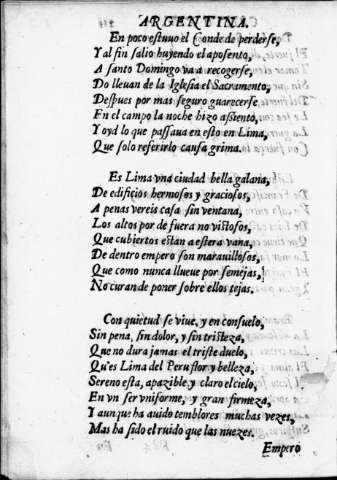 ARGENTINA.
En poco estuuo el Conde de perderse,
Y al fin salio huyendo el aposento,
A santo Domingo va a recogerse,
Do lleuan de la Iglesia el Sacramento,
Despues por mas seguro guarecerse
En el campo la noche hizo assiento,
Y oyd lo que passaua en esto en Lima,
Que solo referirlo causa grima.
Es Lima vna ciudad bella galana,
De edificios hermosos y graciosos,
A penas vereis casa sin ventana,
Los altos por de fuera no vistosos,
Que cubiertos estan a estera vana,
De dentro empero son marauillosos,
Que como nunca llueue por semejas,
No curan de poner sobre ellos tejas.
Con quietud se viue, y en consuelo,
Sin pena, sin dolor, y sin tristeza,
Que no dura jamas el triste duelo,
Qu'es Lima del Peru flor y belleza,
Sereno esta, apazible, y claro el cielo,
En vn ser vniforme, y gran firmeza,
Y aunque ha auido temblores muchas vezes,
Mas ha sido el ruido que las nuezes.
Empero